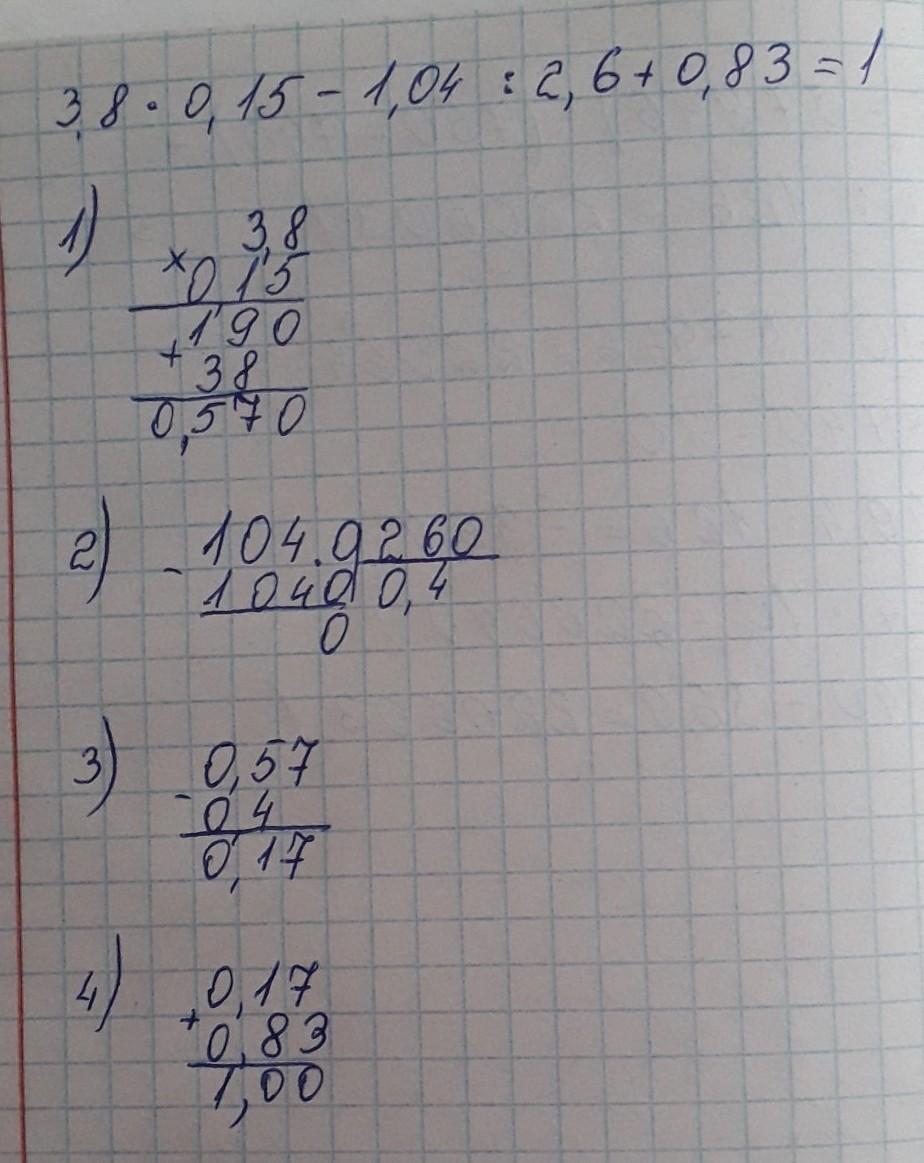 3,8 · 0,15 - 1,04 : 2,6 + 0,83 = 1
1) 3,8
× 0,15
190
+ 38
0,570
2) - 104.0 260
1040 0,4
0
3) 0,57
- 0,4
0,17
4) 0,17
+ 0,83
1,00